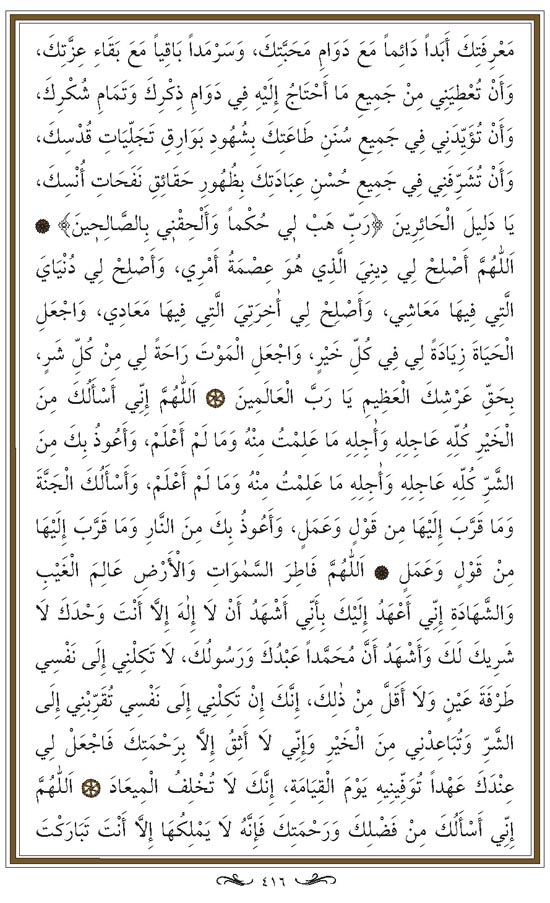 مَعْرِفَتِكَ أَبَداً دَائِماً مَعَ دَوَامِ مَحَبَّتِكَ، وَسَرْمَداً بَاقِياً مَعَ بَقَاءِ عِزَّتِكَ،
وَأَنْ تُعْطِيَنِي مِنْ جَمِيعِ مَا أَحْتَاجُ إِلَيْهِ فِي دَوَامِ ذِكْرِكَ وَتَمَامِ شُكْرِكَ،
وَأَنْ تُؤَيِّدَنِي فِي جَمِيعِ سُنَنِ طَاعَتِكَ بِشُهُودِ بَوَارِقِ تَجَلِّيَاتِ قُدْسِكَ،
وَأَنْ تُشَرِّفَنِي فِي جَمِيعِ حُسْنِ عِبَادَتِكَ بِظُهُورِ حَقَائِقِ نَفَحَاتِ أُنْسِكَ،
يَا دَلِيلَ الْحَائِرِينَ ﴿رَبِّ هَبْ لِي حُكْماً وَأَلْحِقْنِي بِالصَّالِحِينَ﴾
اَللّٰهُمَّ أَصْلِحْ لِي دِينِيَ الَّذِي هُوَ عِصْمَةُ أَمْرِي، وَأَصْلِحْ لِي دُنْيَايَ
الَّتِي فِيهَا مَعَاشِي، وَأَصْلِحْ لِي أٰخِرَتِيَ الَّتِي فِيهَا مَعَادِي، وَاجْعَلِ
الْحَيَاةَ زِيَادَةً لِي فِي كُلِّ خَيْرٍ، وَاجْعَلِ الْمَوْتَ رَاحَةً لِي مِنْ كُلِّ شَرٍ،
بِحَقِّ عَرْشِكَ الْعَظِيمِ يَا رَبَّ الْعَالَمِينَ اَللّٰهُمَّ إِنِّي أَسْأَلُكَ مِنَ
الْخَيْرِ كُلِّهِ عَاجِلِهِ وَأٰجِلِهِ مَا عَلِمْتُ مِنْهُ وَمَا لَمْ أَعْلَمْ، وَأَعُوذُ بِكَ مِنَ
الشَّرِّ كُلِّهِ عَاجِلِهِ وَأٰجِلِهِ مَا عَلِمْتُ مِنْهُ وَمَا لَمْ أَعْلَمْ، وَأَسْأَلُكَ الْجَنَّةَ
وَمَا قَرَّبَ إِلَيْهَا مِن قَوْلٍ وَعَمَلٍ، وَأَعُوذُ بِكَ مِنَ النَّارِ وَمَا قَرَّبَ إِلَيْهَا
مِنْ قَوْلٍ وَعَمَلٍ اَللّٰهُمَّ فَاطِرَ السَّمٰوَاتِ وَالْأَرْضِ عَالِمَ الْغَيْبِ
وَالشَّهَادَةِ إِنِّي أَعْهَدُ إِلَيْكَ بِأَنِّي أَشْهَدُ أَنْ لَا إِلٰهَ إِلَّا أَنْتَ وَحْدَكَ لَا
شَرِيكَ لَكَ وَأَشْهَدُ أَنَّ مُحَمَّداً عَبْدُكَ وَرَسُولُكَ، لَا تَكِلْنِي إِلَى نَفْسِي
طَرْفَةَ عَيْنٍ وَلَا أَقَلَّ مِنْ ذٰلِكَ، إِنَّكَ إِنْ تَكِلْنِي إِلَى نَفْسِي تُقَرِّبْنِي إِلَى
الشَّرِّ وَتُبَاعِدْنِي مِنَ الْخَيْرِ وَإِنِّي لَا أَثِقُ إِلَّا بِرَحْمَتِكَ فَاجْعَلْ لِي
عِنْدَكَ عَهْداً تُوَفِّينِيهِ يَوْمَ الْقِيَامَةِ، إِنَّكَ لَا تُخْلِفُ الْمِيعَادَ اَللّٰهُمَّ
إِنِّي أَسْأَلُكَ مِنْ فَضْلِكَ وَرَحْمَتِكَ فَإِنَّهُ لَا يَمْلِكُهَا إِلَّا أَنْتَ تَبَارَكْتَ
٤١٦